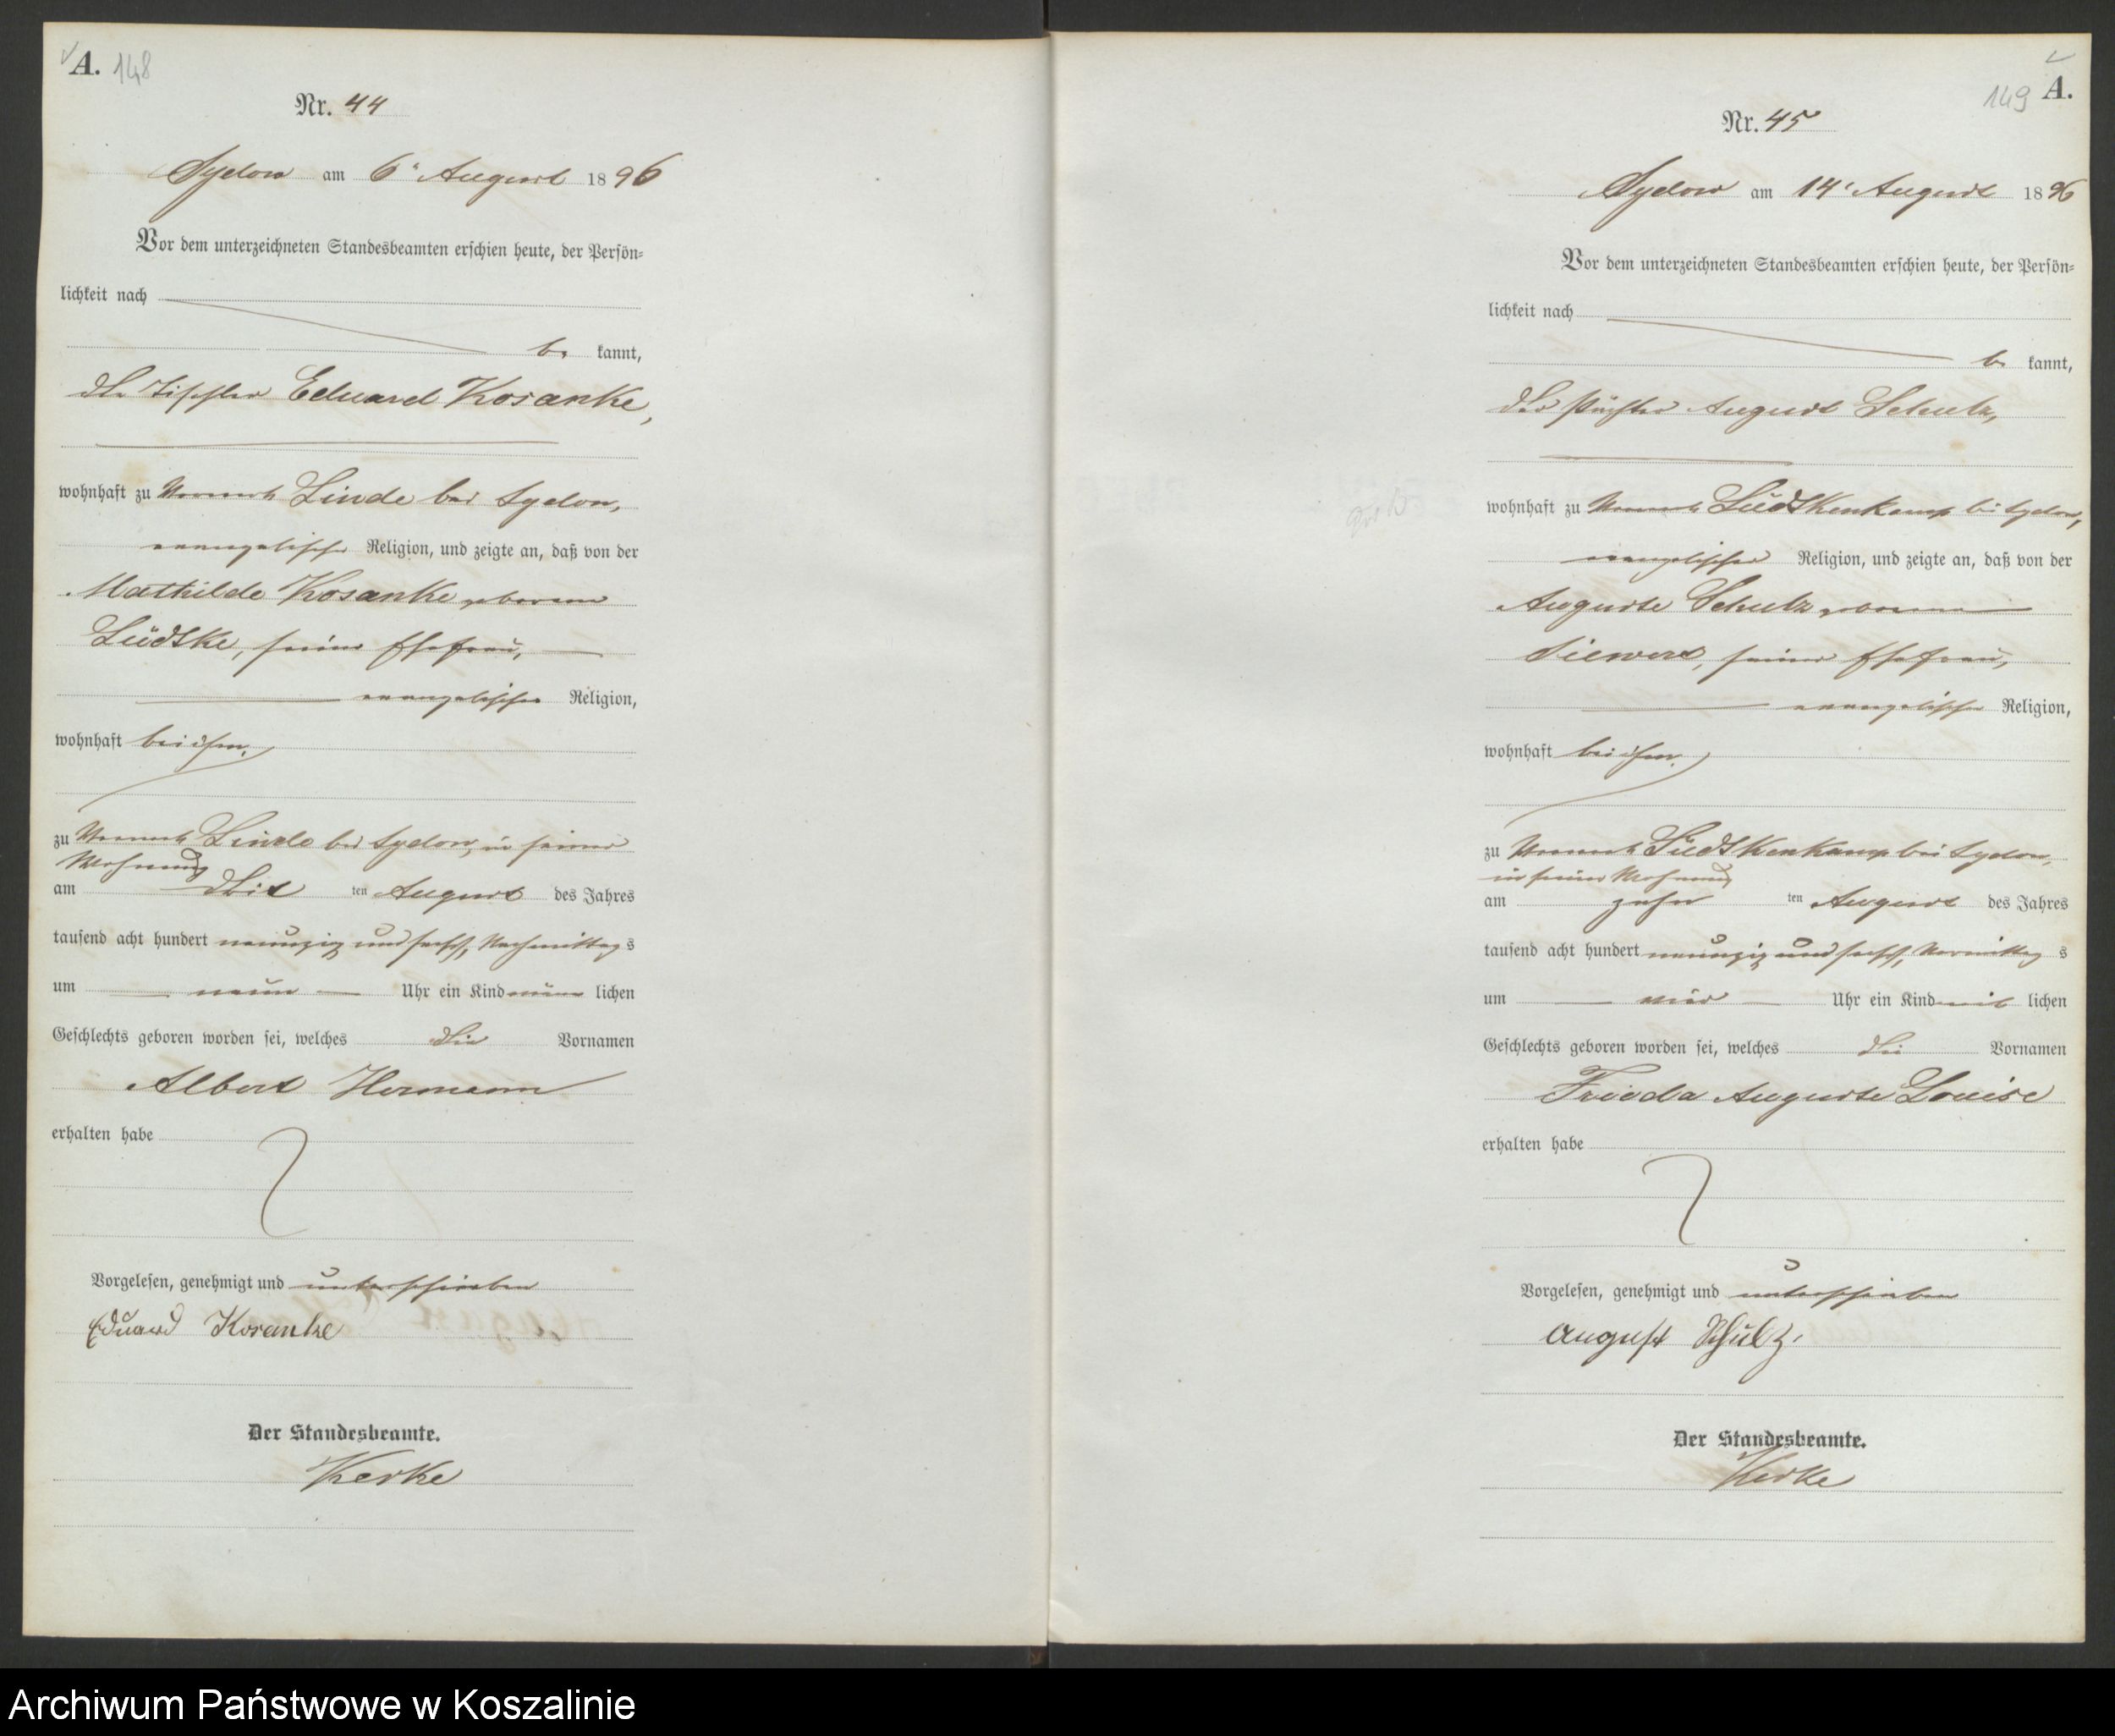 A. 148
Nr. 44
Sydow am 6ᵗ August 1896
Vor dem unterzeichneten Standesbeamten erschien heute, der Persön-
lichkeit nach
be kannt,
der Tischler Eduard Kosanke,
wohnhaft zu Vorwerk Linde bei Sydow,
evangelischer Religion, und zeigte an, daß von der
Mathilde Kosanke geborene
Lüdtke, seiner Ehefrau,
evangelischer Religion,
wohnhaft bei ihm,
zu Vorwerk Linde bei Sydow, in seiner
Wohnung
am drit ten August des Jahres
tausend acht hundert neunzig und sechs, Nachmittag s
um neun Uhr ein Kind männ lichen
Geschlechts geboren worden sei, welches die Vornamen
Albert Hermann
erhalten habe
Vorgelesen, genehmigt und unterschrieben
Eduard Kosanke
Der Standesbeamte.
Kerke
149 A.
Nr. 45
Sydow am 14ᵗ August 1896
Vor dem unterzeichneten Standesbeamten erschien heute, der Persön-
lichkeit nach
be kannt,
der Pächter August Schulz,
wohnhaft zu Vorwerk Lüdtkenkamp bei Sydow,
evangelischer Religion, und zeigte an, daß von der
Auguste Schulz geborene
Siewert, seiner Ehefrau,
evangelischer Religion,
wohnhaft bei ihm,
zu Vorwerk Lüdtkenkamp bei Sydow,
in seiner Wohnung
am zehn ten August des Jahres
tausend acht hundert neunzig und sechs, Vormittag s
um vier Uhr ein Kind weib lichen
Geschlechts geboren worden sei, welches die Vornamen
Frieda Auguste Louise
erhalten habe
Vorgelesen, genehmigt und unterschrieben
August Schulz.
Der Standesbeamte.
Kerke
Archiwum Państwowe w Koszalinie